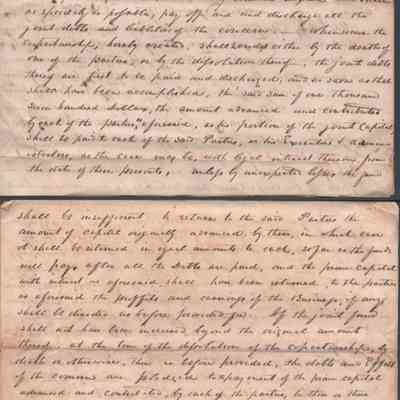 as speedily as possible, pay off and and discharge all the
joint debts and liabilities of the concern. Whensoever the
Copartnership, hereby created, shall be ended either by the death of
one of the parties, or by the dissolution thereof, the joint debts
thereof are first to be paid and discharged, and as soon as that
shall have been accomplished, the said sum of one thousand
Seven hundred dollars, the amount advanced and contributed
by each of the parties, aforesaid, as his portion of the joint Capital,
shall be paid to each of the said Parties, or his Executors &
as the case may be, with legal interest thereon, from
the date of these presents, unless by unexpected losses, the fund
shall be insufficient to return to the said Parties the
amount of capital originally advanced, by them, in which case
it shall be returned in equal amounts to each, so far as the funds
will pay, after all the Debts are paid, and the prime Capital
with interest as aforesaid shall have been returned, to the parties
as aforesaid the profits and earnings of the Business, if any
shall be divided as before provided for. If the joint fund
shall not have been increased beyond the original amount
thereof, at the time of the dissolution of the copartnership, by
death or otherwise, then as before provided, the debts and Effects
of the concern are pledged to payment of the prime capital
advanced and contributed, by each of the parties, to them or their